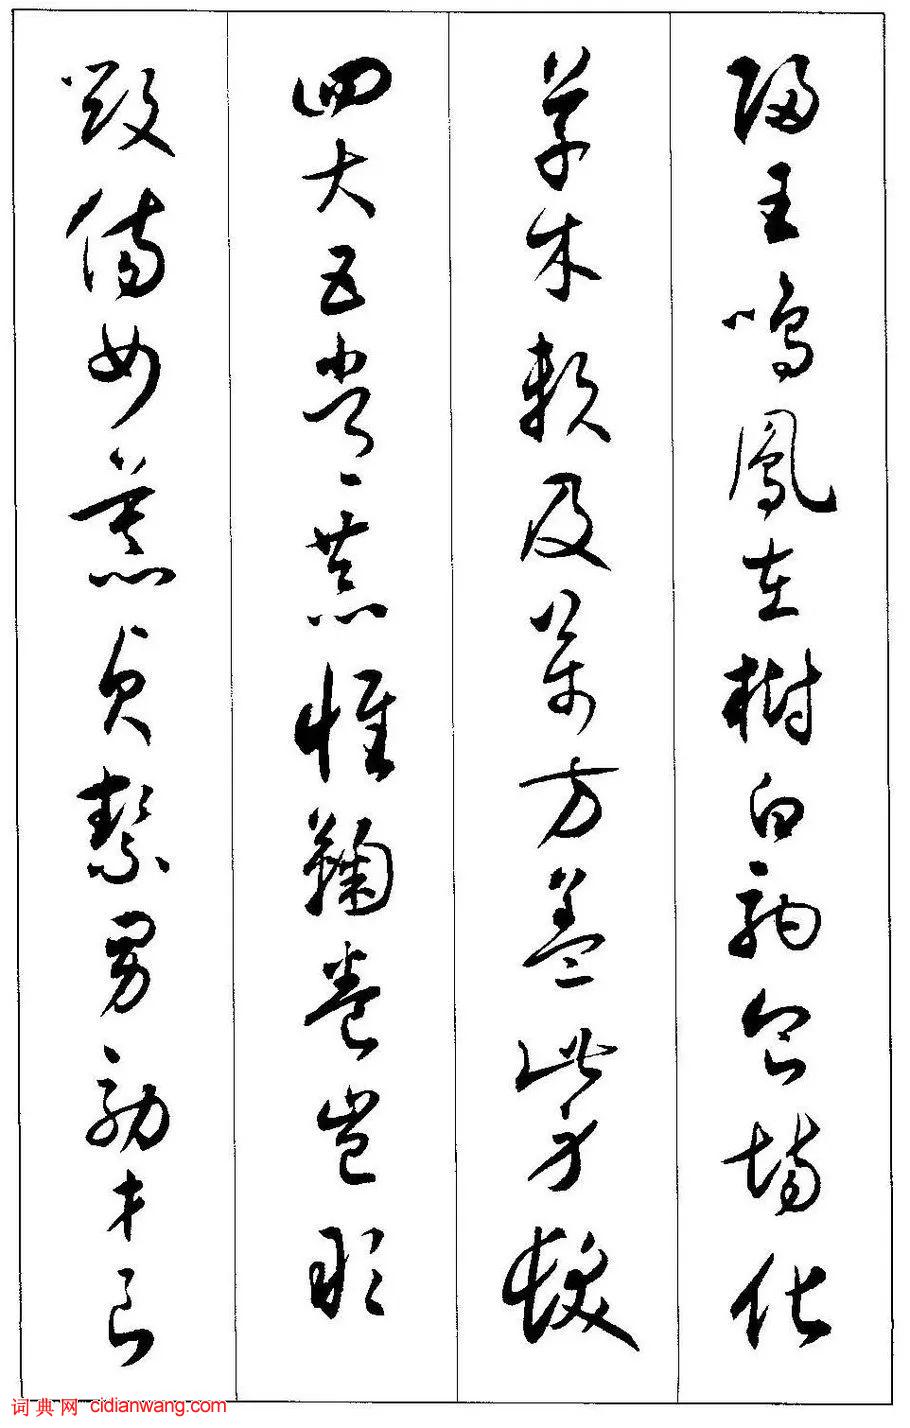 歸王鳴鳳在樹白駒食場化
草木賴及萬方蓋此身髮
四大五常恭惟鞠養豈敢
毀傷女慕貞絜男効才良
词典网 cidianwang.com